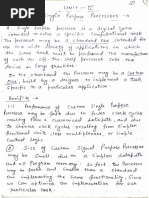 Unit - II
Single Purpose Processors →
A Single Purpose Processor is a digital system
intended to solve a specific computational task.
The processor may be a standard one intended for
use in a wide variety of applications in which
the same task must be performed. The manufacturer
of such an off the shelf
device in large quantities.
On the processor may be a custom
one, built by a designer to implement a task
specific to a particular application.
Benefits →
1. Performance of Custom Single Purpose
Processor may be fast due to fewer clock cycles
resulting from a customized datapath, and due
to shorter clock cycles resulting from simpler
functional units, less multiplexers, or simpler
control logic.
2. Size of Custom Single Purpose Processor
may be small due to a simpler datapath
and no Program memory. So that the Processor
may be faster and smaller than a standard
one implementing the same functionality. Since
we can optimize the implementation for our
particular task.